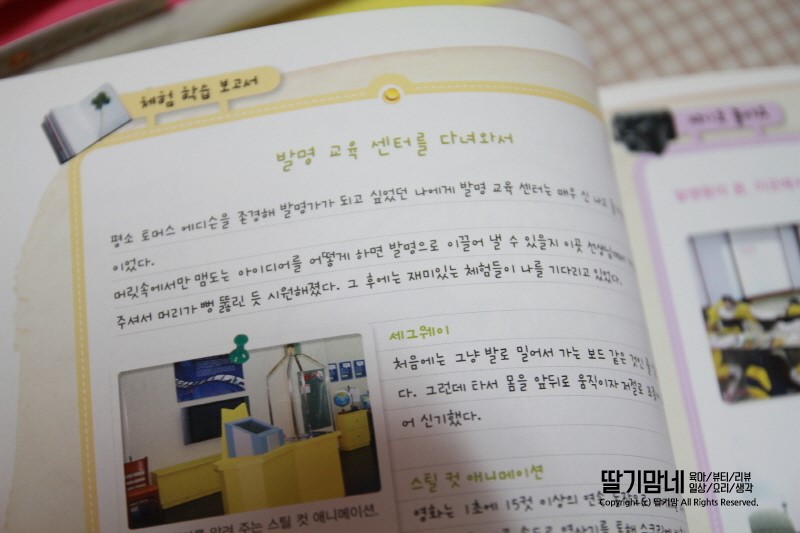 체험 학습 보고서
발명 교육 센터를 다녀와서
평소 토머스 에디슨을 존경해 발명가가 되고 싶었던 나에게 발명 교육 센터는 매우 신 나고
이었다.
머릿속에서만 맴도는 아이디어를 어떻게 하면 발명으로 이끌어 낼 수 있을지 이곳 선생님께서
주셔서 머리가 뻥 뚫린 듯 시원해졌다. 그 후에는 재미있는 체험들이 나를 기다리고 있었다.
세그웨이
처음에는 그냥 발로 밀어서 가는 보드 같은 것인 줄
다. 그런데 타서 몸을 앞뒤로 움직이자 저절로
어 신기했다.
스틸 컷 애니메이션
영화는 1초에 15컷 이상의 연속
알려 주는 스틸 컷 애니메이션.
딸기맘네 육아/뷰티/리뷰
일상/요리/생각
Copyright (c) 딸기맘 All Rights Reserved.